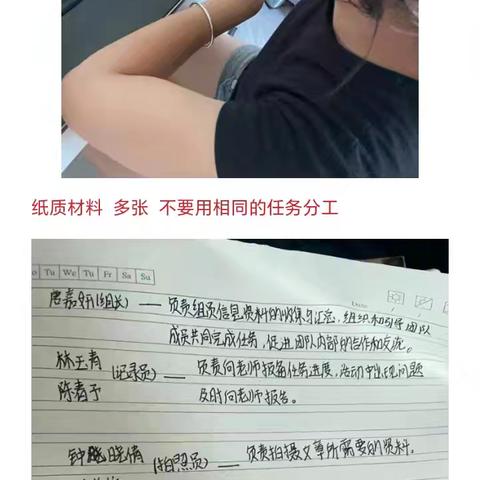 纸质材料 多张 不要用相同的任务分工
Tu We Tu Fr Sa Su
Date
唐嘉妍(组长) — 负责组员信息资料的收集与汇总,组织和引导团队
成员共同完成任务,促进团队内部的合作和交流。
林玉青 (记录员) — 负责向老师报备任务进度,活动中出现问题
陈春予 及时向老师报告。
钟晓倩 (拍照员) — 负责拍摄文章所需要的资料。